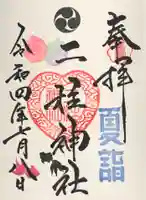 奉拝
夏詣
二柱神社
令和四年七月八日